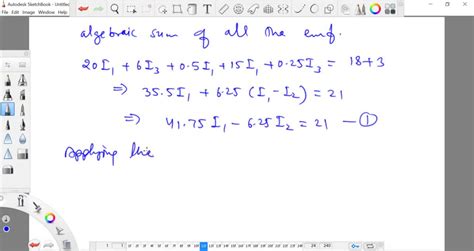 Autodesk SketchBook - Untitled
algebraic sum of all the emf.
20I₁ + 6I₃ + 0.5I₁ + 15I₁ + 0.25I₃ = 18+3
⇒ 35.5I₁ + 6.25 (I₁-I₂) = 21
⇒ 41.75I₁ - 6.25I₂ = 21 — ①
Applying the